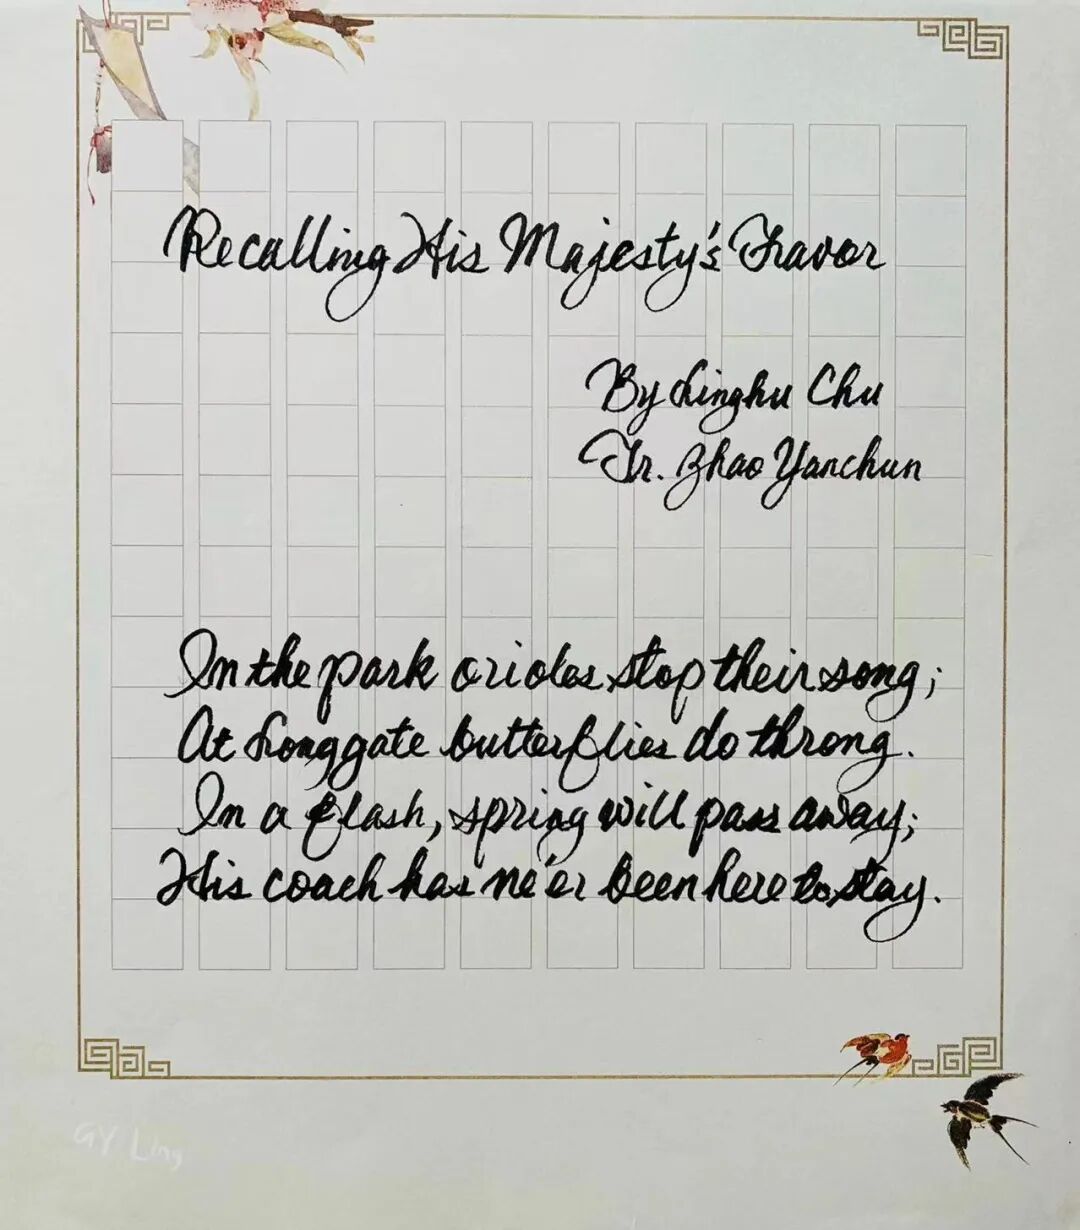 Recalling His Majesty's Favor
By Linghu Chu
Tr. Zhao Yanchun
In the park orioles stop their song;
At Longgate butterflies do throng.
In a flash, spring will pass away;
His coach has ne'er been here to stay.
GY Ling